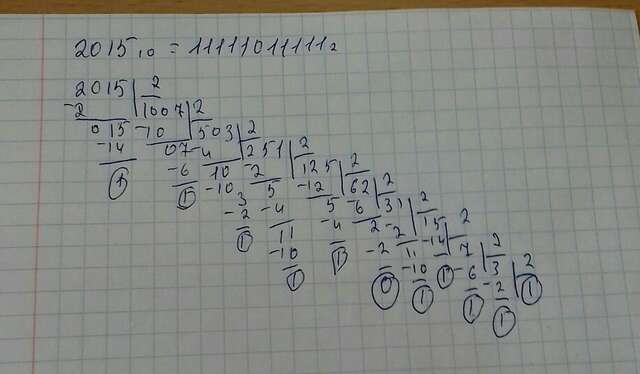 2015₁₀ = 11111011111₂
2015 2
-2 1007 2
015 -10 503 2
-14 07 -4 251 2
1 -6 10 -2 125 2
1 -10 5 -12 62 2
3 -4 5 -6 31 2
-2 11 -4 2 -2 15 2
1 -10 1 -2 11 -14 7 2
1 0 -10 1 -6 3 2
1 1 -2 1
1